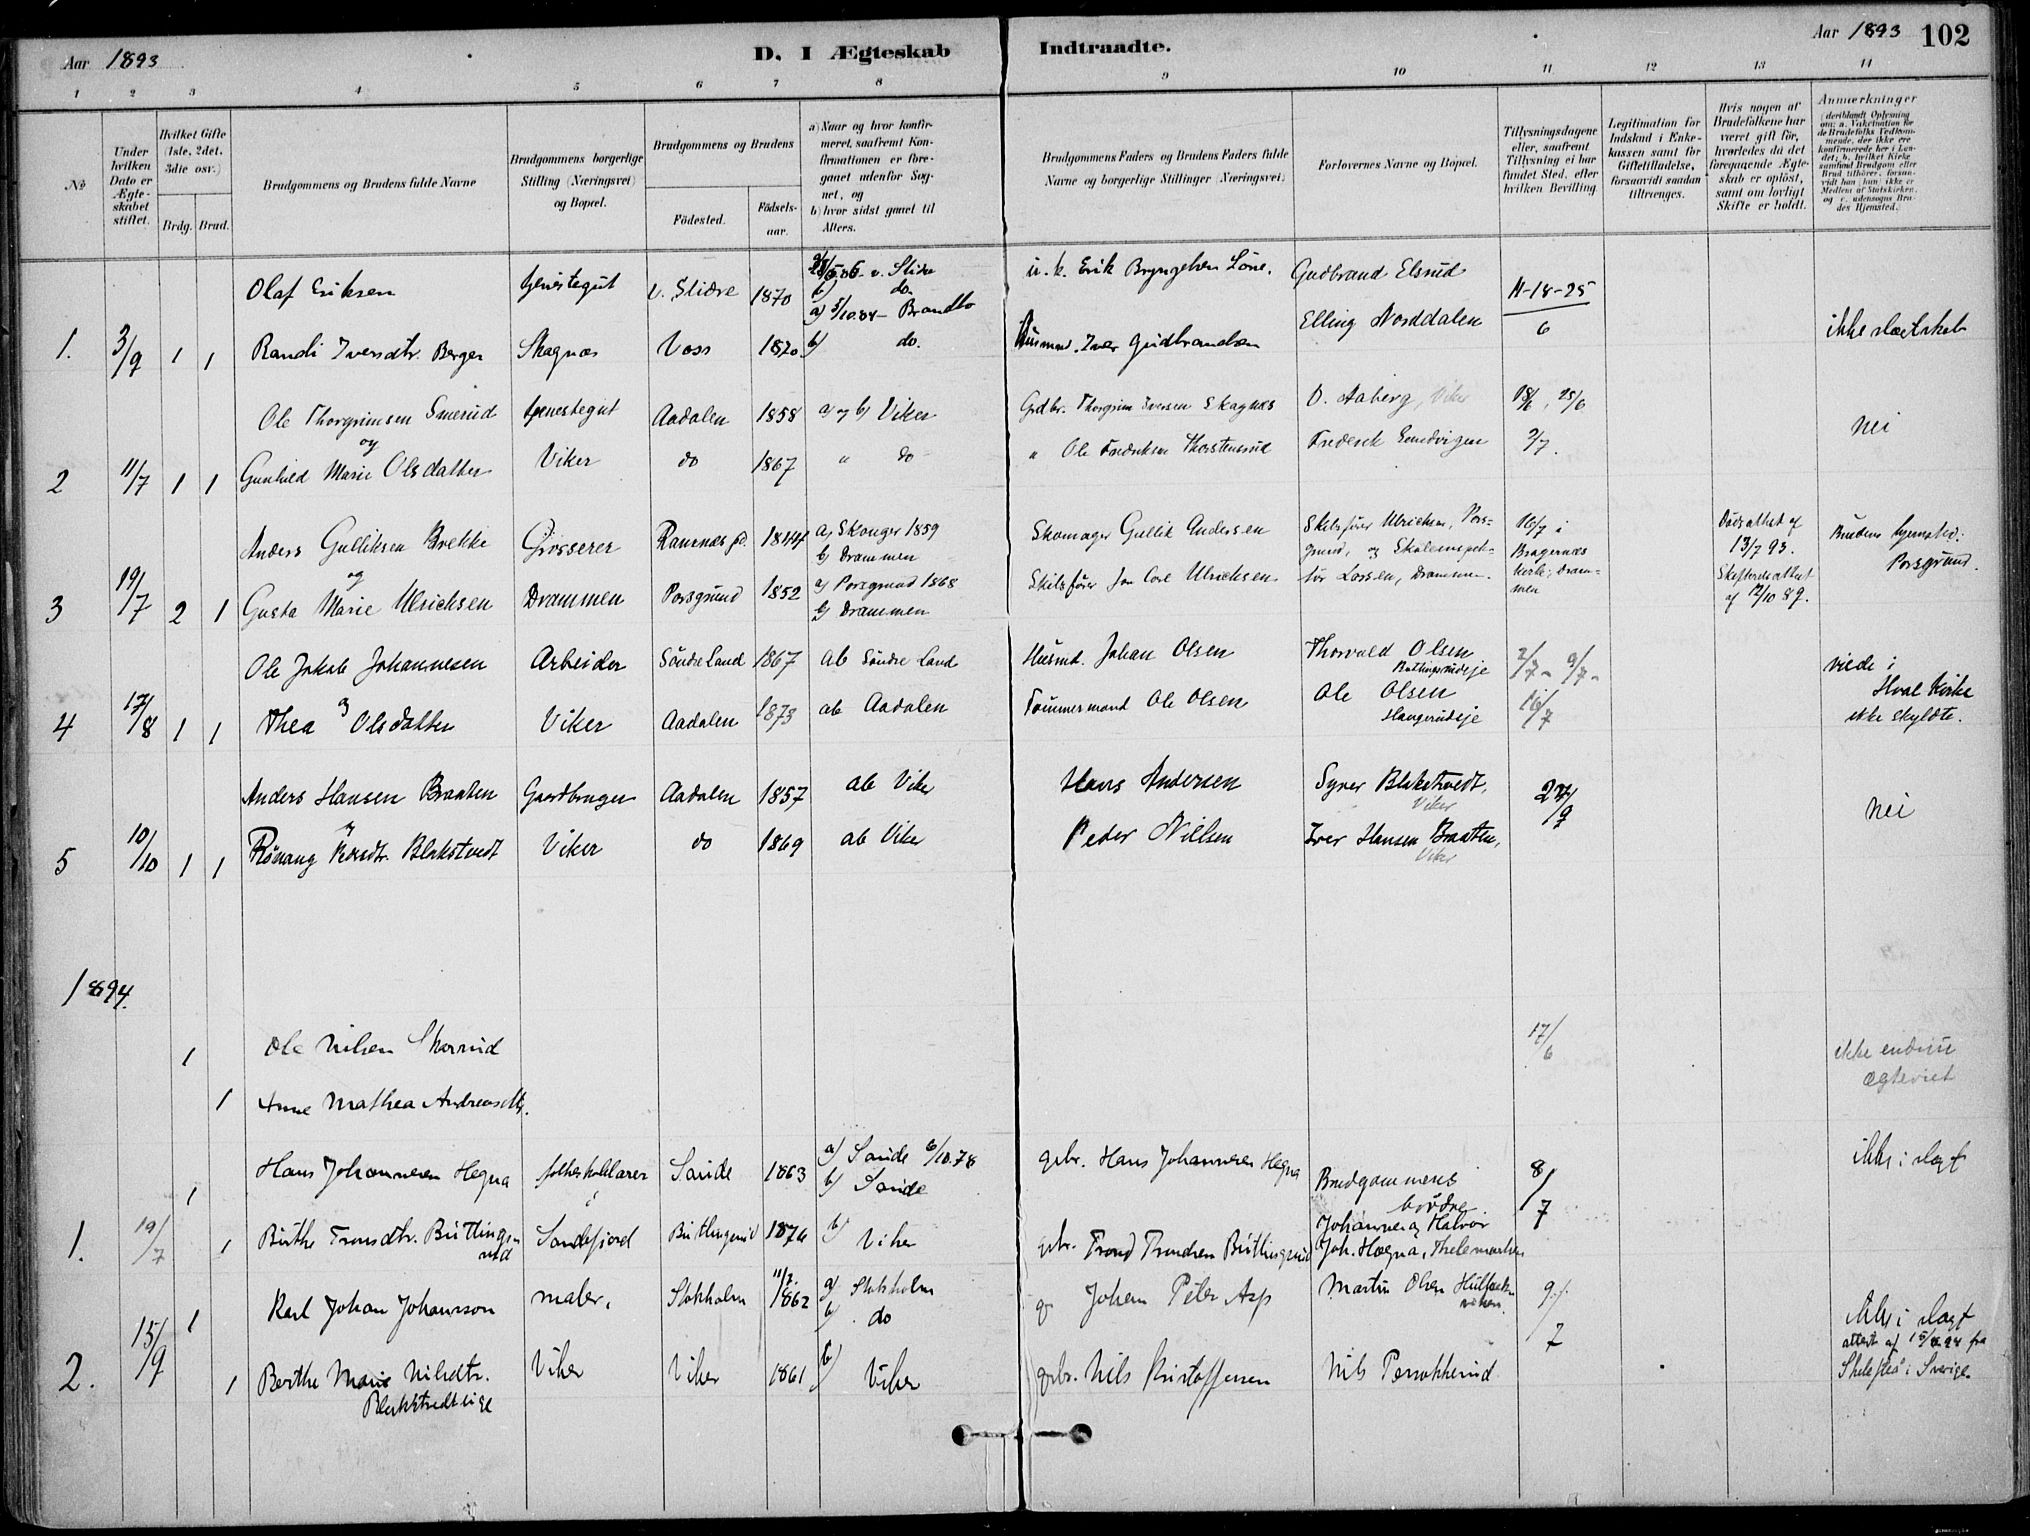 Aar 1893
D. I Ægteskab Indtraadte.
Aar 1893 102
1 2 3 4 5 6 7 8 9 10 11 12 13 14
No
Under hvilken Dato er Ægteskabet stiftet.
Hvilket Gifte (1ste, 2det, 3die osv.)
Brdg. Brud.
Brudgommens og Brudens fulde Navne
Brudgommens borgerlige Stilling (Næringsvei) og Bopæl.
Brudgommens og Brudens
Födested. Födsels-aar.
a) Naar og hvor konfirmeret, saafremt Konfirmationen er foregaaet udenfor Sognet, og
b) hvor sidst gaaet til Alters.
Brudgommens Faders og Brudens Faders fulde Navne og borgerlige Stillinger (Næringsvei)
Forlovernes Navne og Bopæl.
Tillysningsdagene eller, saafremt Tillysning ei har fundet Sted, efter hvilken Bevilling.
Legitimation for Indskud i Enkekassen samt for Giftetilladelse, forsaavidt saadan tiltrænges.
Hvis nogen af Brudefolkene har været gift før, hvorledes da det foregaaende Ægteskab er oplöst, samt om lovligt Skifte er holdt.
Anmærkninger
Olaf Eriksen tjenestegut V. Slidre 1870 v. Slidre b) do u. k. Erik Gudbrand Elsrud 11-18-25
1. 3/9 1 1 Randi Iversdtr. Berger Skagnæs Voss 1870 a) 5/10.84 - Brandbo b) do. Husmd. Iver Gudbrandsen Elling Norddalen 6 ikke slægtskab
Ole Thorgrimsen Smerud tjenestegut Aadalen 1858 a) og b) Viker Grdbr. Thorgrim Iversen Skagnæs O. Aaberg, Viker 18/6, 25/6
og
2 11/7 1 1 Gunhild Marie Olsdatter Viker do 1867 " do " Ole Fredriksen Thorstensrud Frederik Sandvigen 2/7. nei
Anders Gulliksen Brekke Grosserer 1844 a) Skouger 1859 b) Drammen Skomager Gullik Andersen Skibsfører Ulrichsen, Porsgrund, og 16/7 i Bragernæs Kirke; Drammen 13/7 93. Brudens hjemsted: Porsgrund.
og
3 19/7 2 1 Gusta Marie Ulrichsen Drammen Porsgrund 1852 a) Porsgrund 1868 b) Drammen Skibsfører Jon Carl Ulrichsen Larsen, Drammen. Skifteridsattest af 12/10 89.
Ole Jakob Johannesen Arbeider Söndre Land 1867 ab Söndre Land Husmd. Johan Olsen Thorvald Olsen Butlingsrudeje 2/7 - 9/7 -
og
4 17/8 1 1 Thea Olsdatter Viker Aadalen 1873 ab Aadalen Tömmermand Ole Olsen Ole Olsen Haugerudeje 16/7 viede i Hval Kirke ikke skyldte.
Anders Hansen Braaten Gaardbruger Aadalen 1857 ab Viker Hans Andersen Syver Blakstvedt, Viker
og
5 10/10 1 1 Rönaug Pedersdtr. Blakstvedt Viker do 1869 ab Viker Peder Nielsen Iver Hansen Braaten, Viker nei
1894.
1 Ole Nilsen Skarrud 17/6 ikke endnu ægteviet
1 Anne Mathea Andreasdtr.
1 Hans Johannesen Hegna folkeskolelærer Sande 1863 a) Sande 6/10.78 b) Sande grbr. Hans Johannesen Hegna Brudgommens brödre 8/7 ikke i slægt
1. 19/7 1 Birthe Tronsdtr. Buttingsrud Sandefjord Buttingsrud 1874 b) Viker grbr. Trond Trondsen Buttingsrud Johannes og Halvor Joh. Hegna, Thelemarken
1 Karl Johan Johansson maler, Stokholm 11/7. 1862 a) Stokholm b) do Johan Peter Asp Martin Olsen 9./7
2. 15/9 1 Berthe Marie Nilsdtr. Blakstvedteige Viker Viker 1861 b) Viker grbr. Nils Kristoffersen Nils ikke i slægt attest af 15/8.94 fra i Sverige.